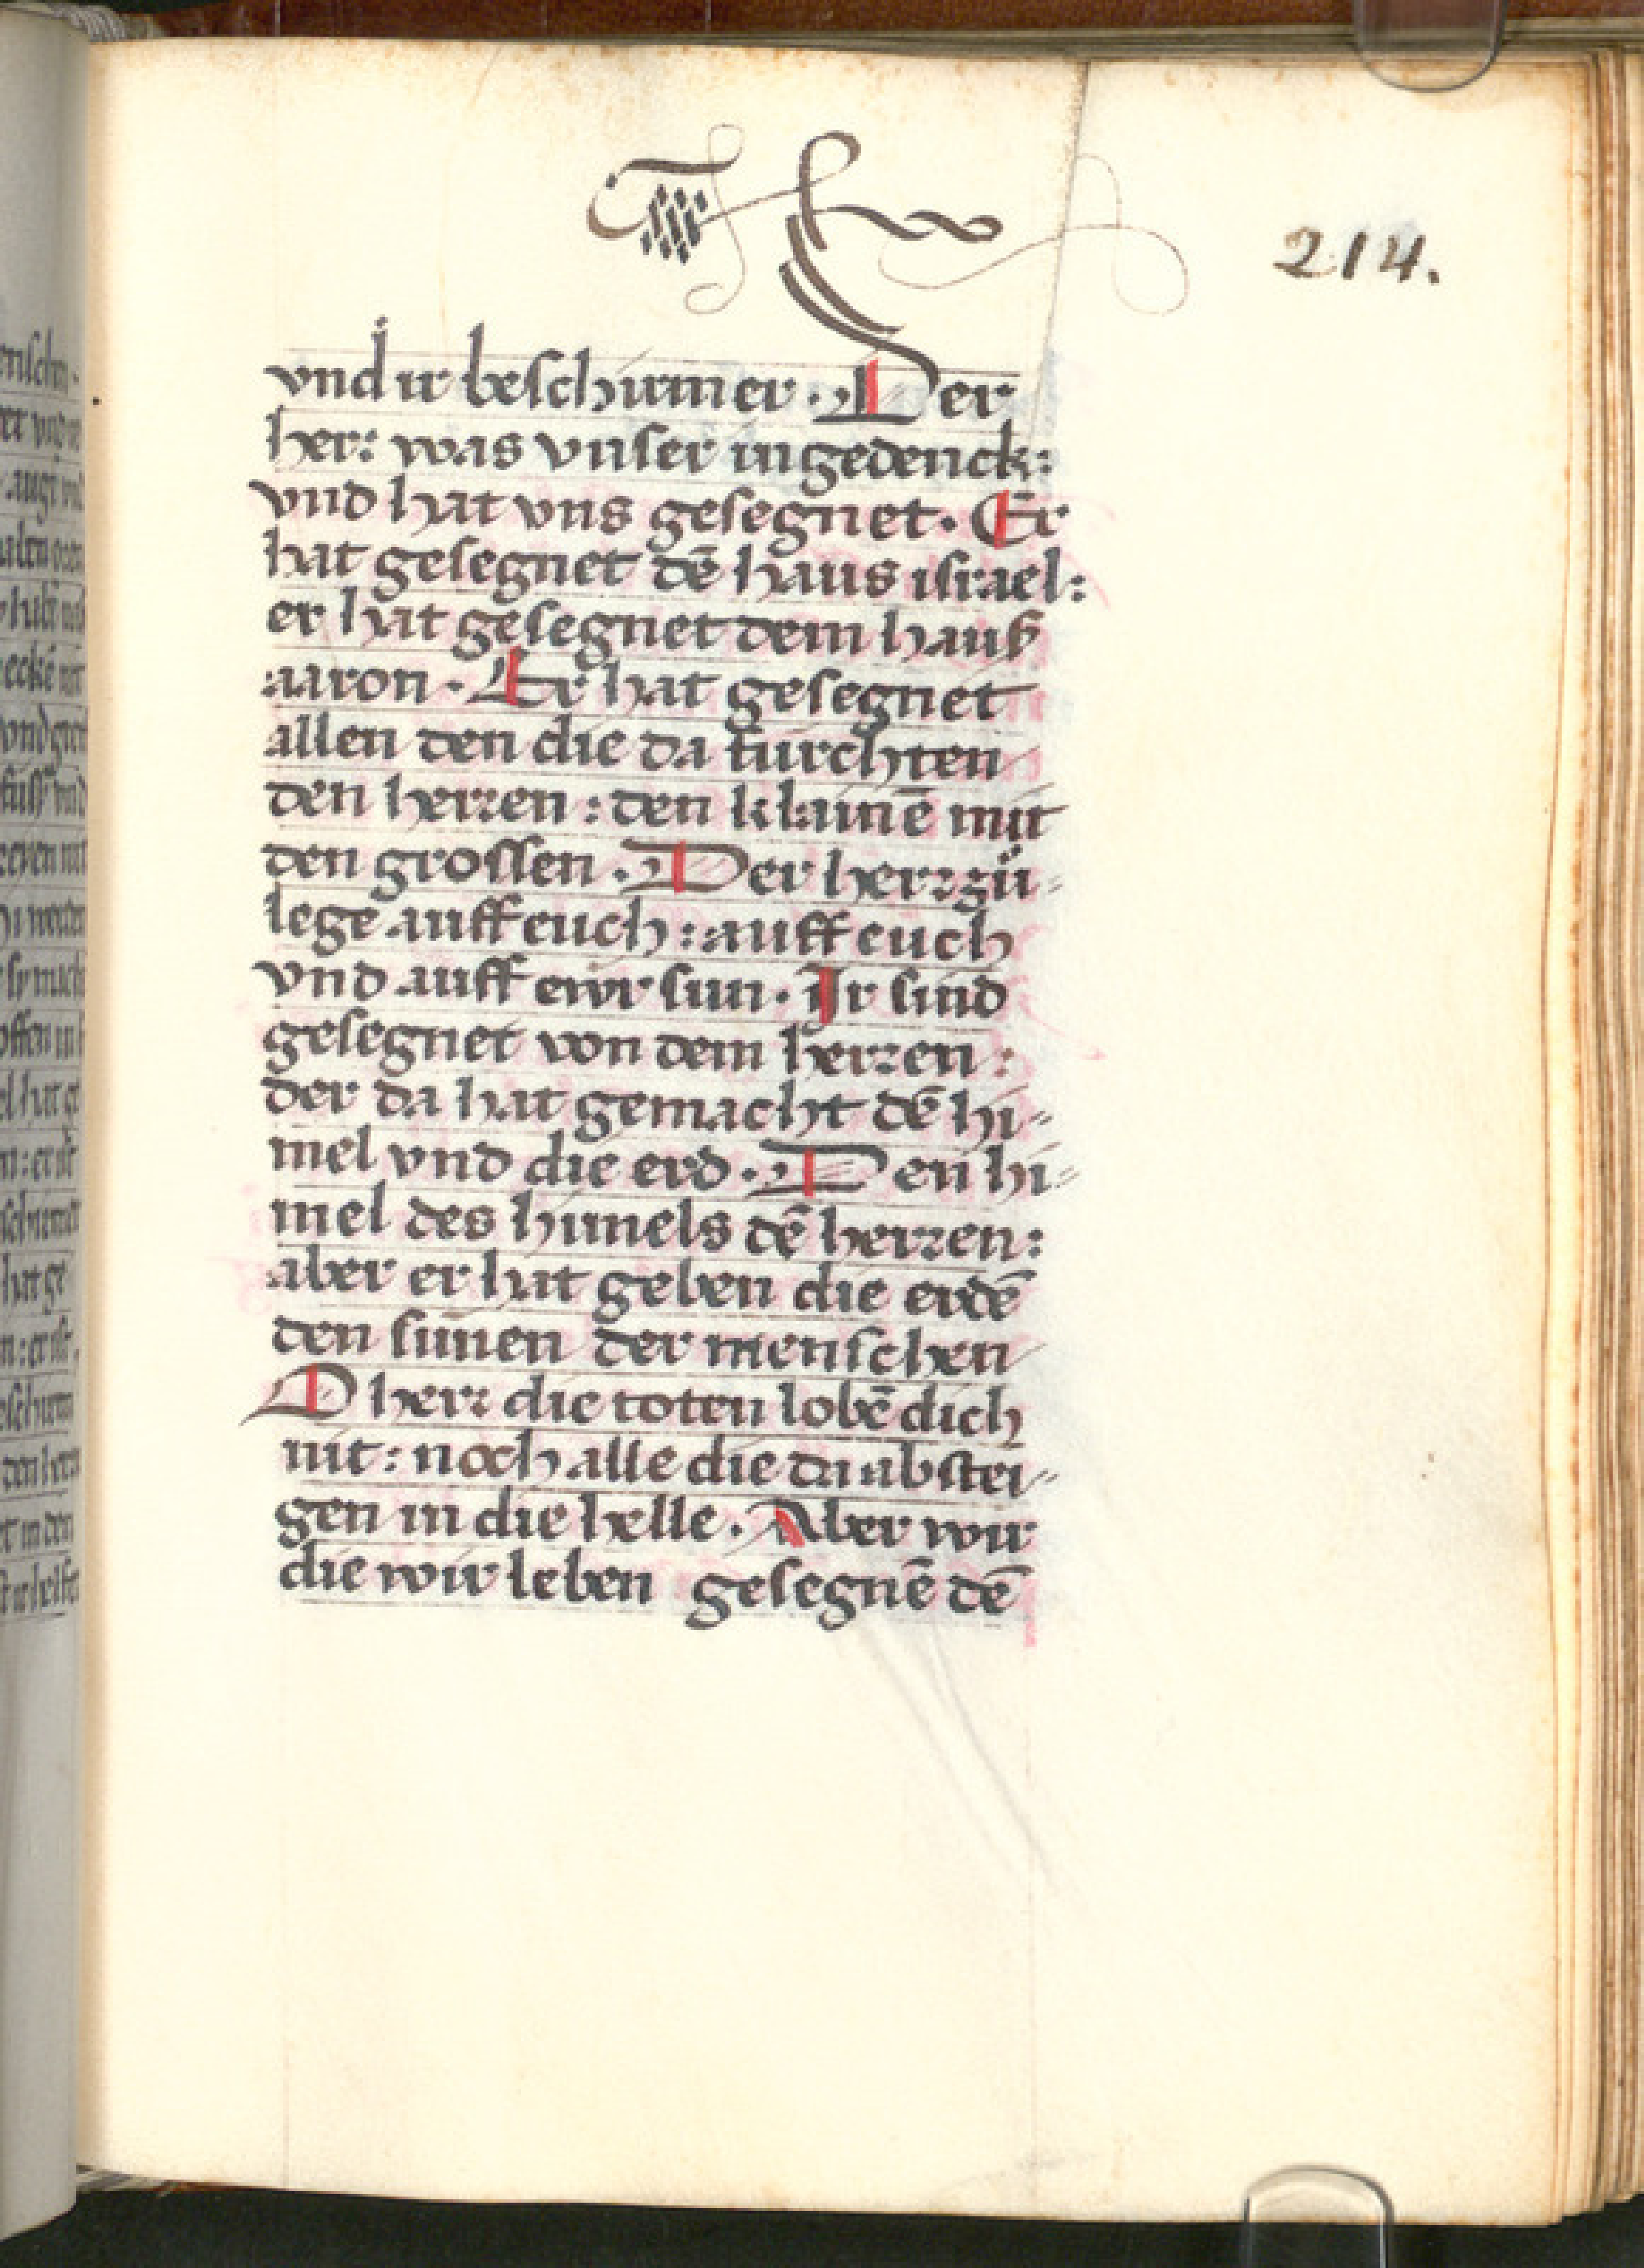 214.
vnd ir beschirmer. Der
herr was vnser ingedenck:
vnd hat vns gesegnet. Er
hat gesegnet dē haus israel:
er hat gesegnet dem hauß
aaron. Er hat gesegnet
allen den die da furchten
den herren: den klainē mit
den grossen. Der herr zů-
lege auff euch: auff euch
vnd auff ewr sun. Ir sind
gesegnet von dem herren:
der da hat gemacht dē hi-
mel vnd die erd. Den hi-
mel des himels dē herren:
aber er hat geben die erdē
den sunen der menschen
O herr die toten lobē dich
nit: noch alle die da abstei-
gen in die helle. Aber wir
die wir leben gesegnē dē